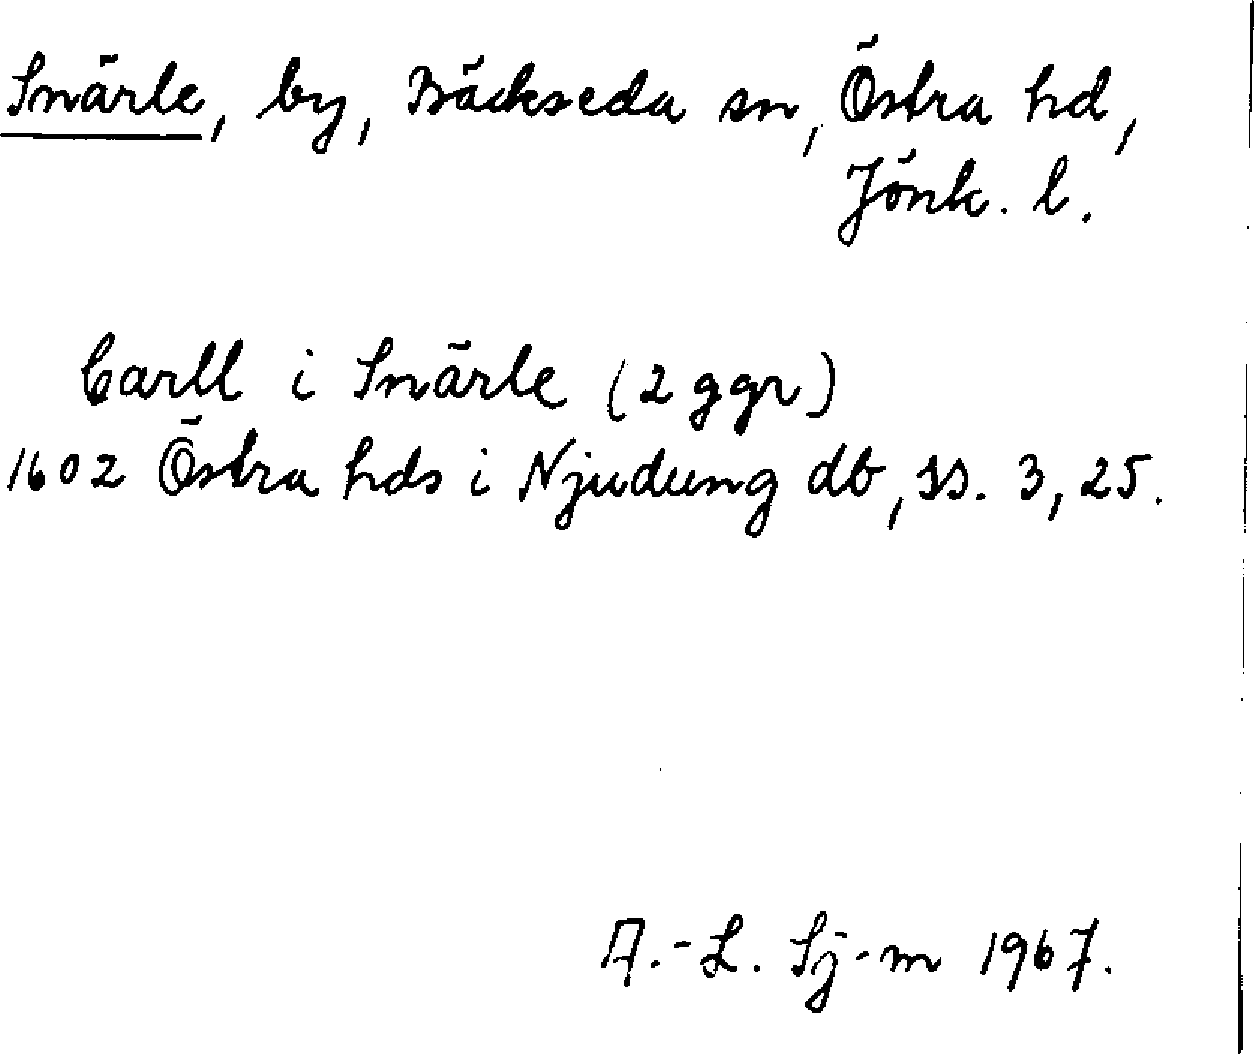 Snärle, by, Bäckseda sn, Östra hd,
Jönk. l.
Carll i Snärle (2 ggr)
1602 Östra hds i Njudung db, ss. 3, 25.
A.-L. Sj-m 1967.